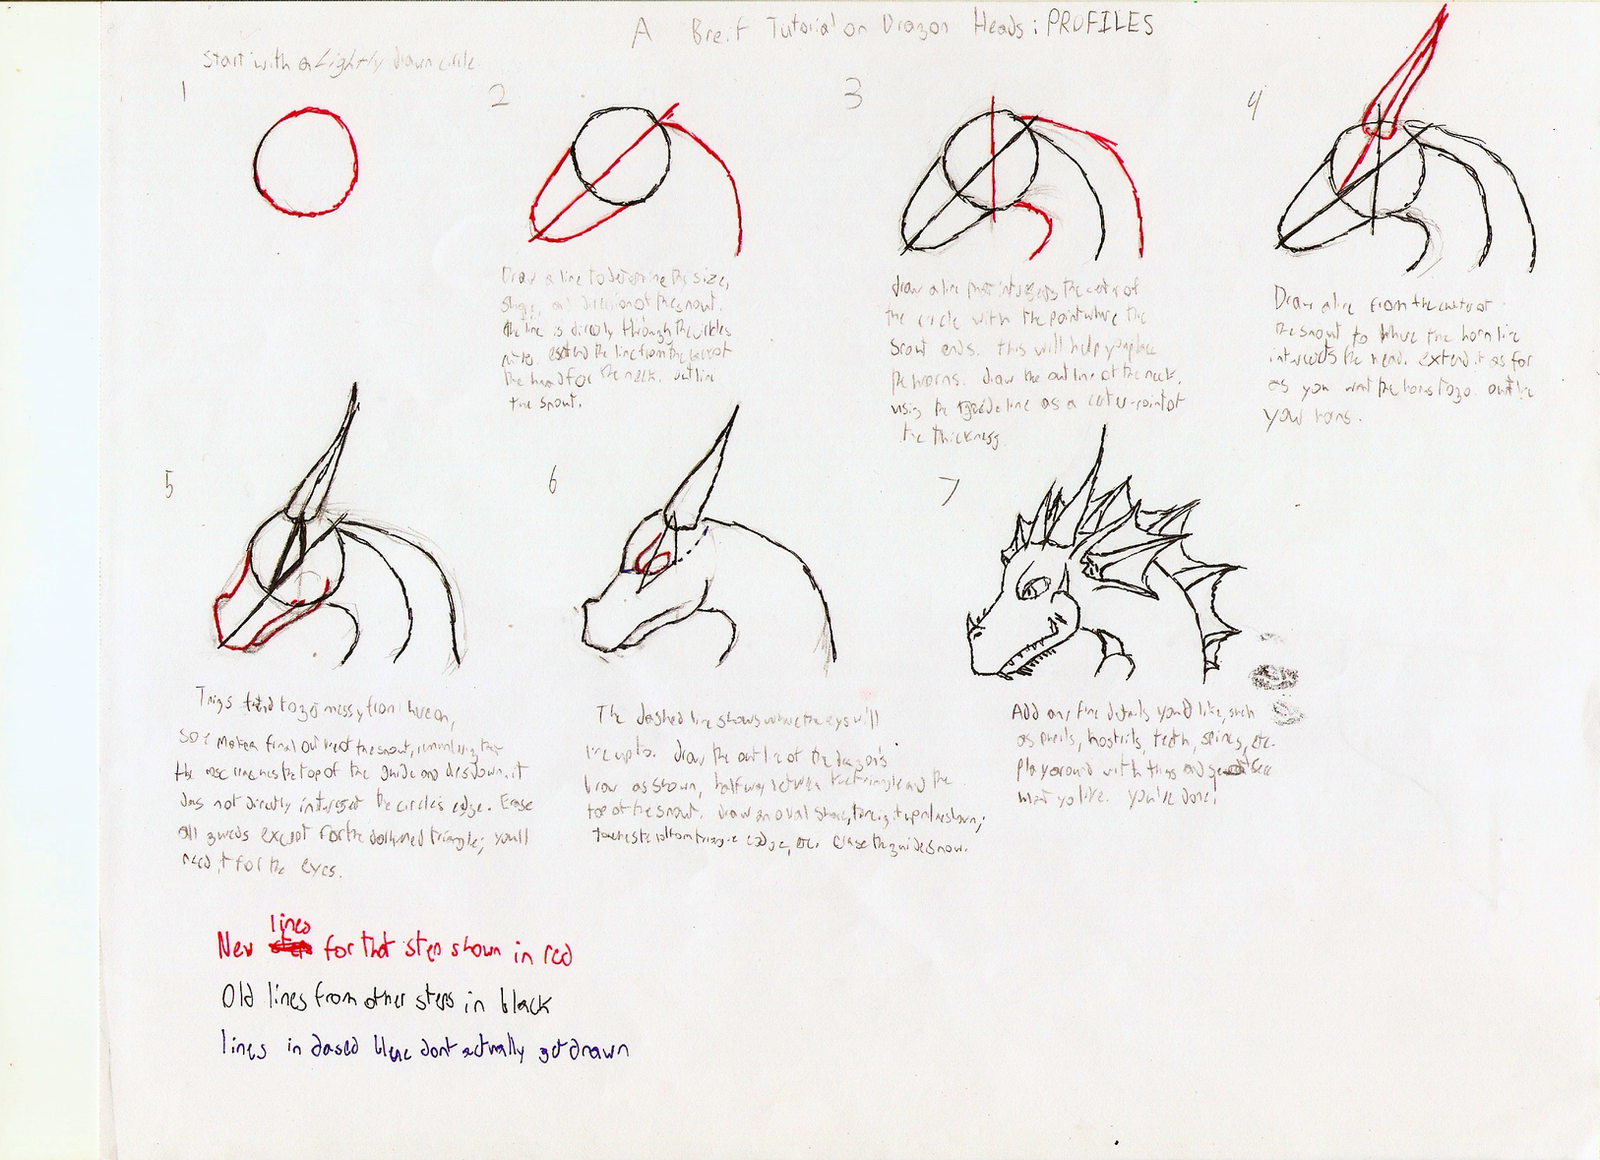 A Breif Tutorial on Dragon Heads: PROFILES
Start with a Lightly drawn circle.
1
2
Draw a line to determine the size,
shape, and direction of the snout.
the line is directly through the circles
extend the line from the back of
the head for the neck. outline
the snout.
3
draw a line that intersects the center of
the circle with the point where the
snout ends. this will help you place
the horns. draw the outline of the neck,
using the guideline as a center-point of
the thickness.
4
Draw a line from the center of
the snout to where the horn line
intersects the head. extend it as far
as you want the horns to go. outline
your horns.
5
Things tend to go messy from here on,
so make a final outline of the snout,
the top of the guide and it
does not directly intersect the circle's edge. Erase
all guides except for the darkened triangle; you'll
need it for the eyes.
6
The dashed line shows where the eyes will
line up to. draw the outline of the dragon's
brow as shown, halfway between the triangle and the
top of the snout. draw an oval shape, as shown;
bottom triangle edge, etc. erase the guides now.
7
Add any fine details you'd like, such
as nostrils, teeth, spines, etc.
play around with things and see
what you like. you're done!
New lines for that step shown in red
Old lines from other steps in black
lines in dased blue dont actually get drawn